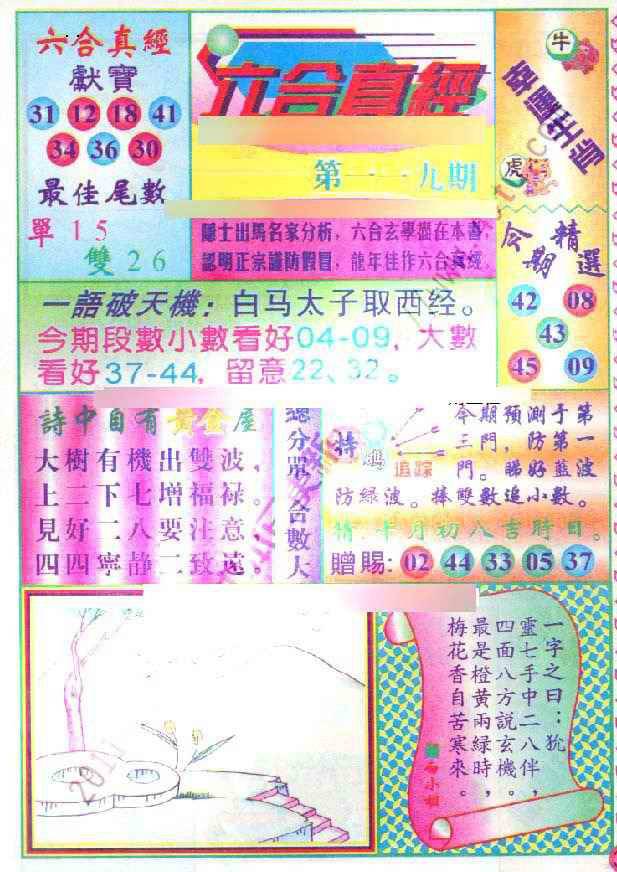 六合真經
獻寶
31 12 18 41
34 36 30
最佳尾數
單15
雙26
六合真經
第一一九期
隱士出馬名家分析，六合玄學盡在本書，
認明正宗謹防假冒，龍年佳作六合真經。
牛
虎
今期精選
42 08
43
45 09
一語破天機：白马太子取西经。
今期段數小數看好04-09，大數
看好37-44，留意22、32。
詩中自有黃金屋
大樹有機出雙波，
上二下七增福禄。
見好二八要注意，
四四寧静二致遠。
總分單，合數大
特
追踪
今期預測于第
三門，防第一
門。睇好藍波
防緑波。捧雙數追小數。
十月初八吉時日。
贈賜：02 44 33 05 37
一字之曰：犹
靈七手中二八伴，
四面八方說玄機。
最是橙黄兩緑時，
梅花香自苦寒來。
小姐